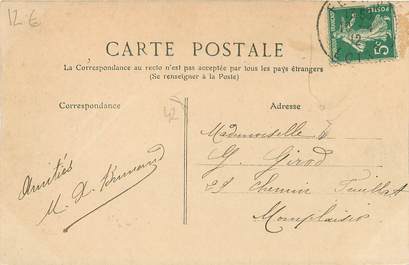 12 €
CARTE POSTALE
La Correspondance au recto n'est pas acceptée par tous les pays étrangers
(Se renseigner à la Poste)
Correspondance
Adresse
42
Mademoiselle
G. Girod
29 Chemin Feuillat
Monplaisir
Amitiés
5c